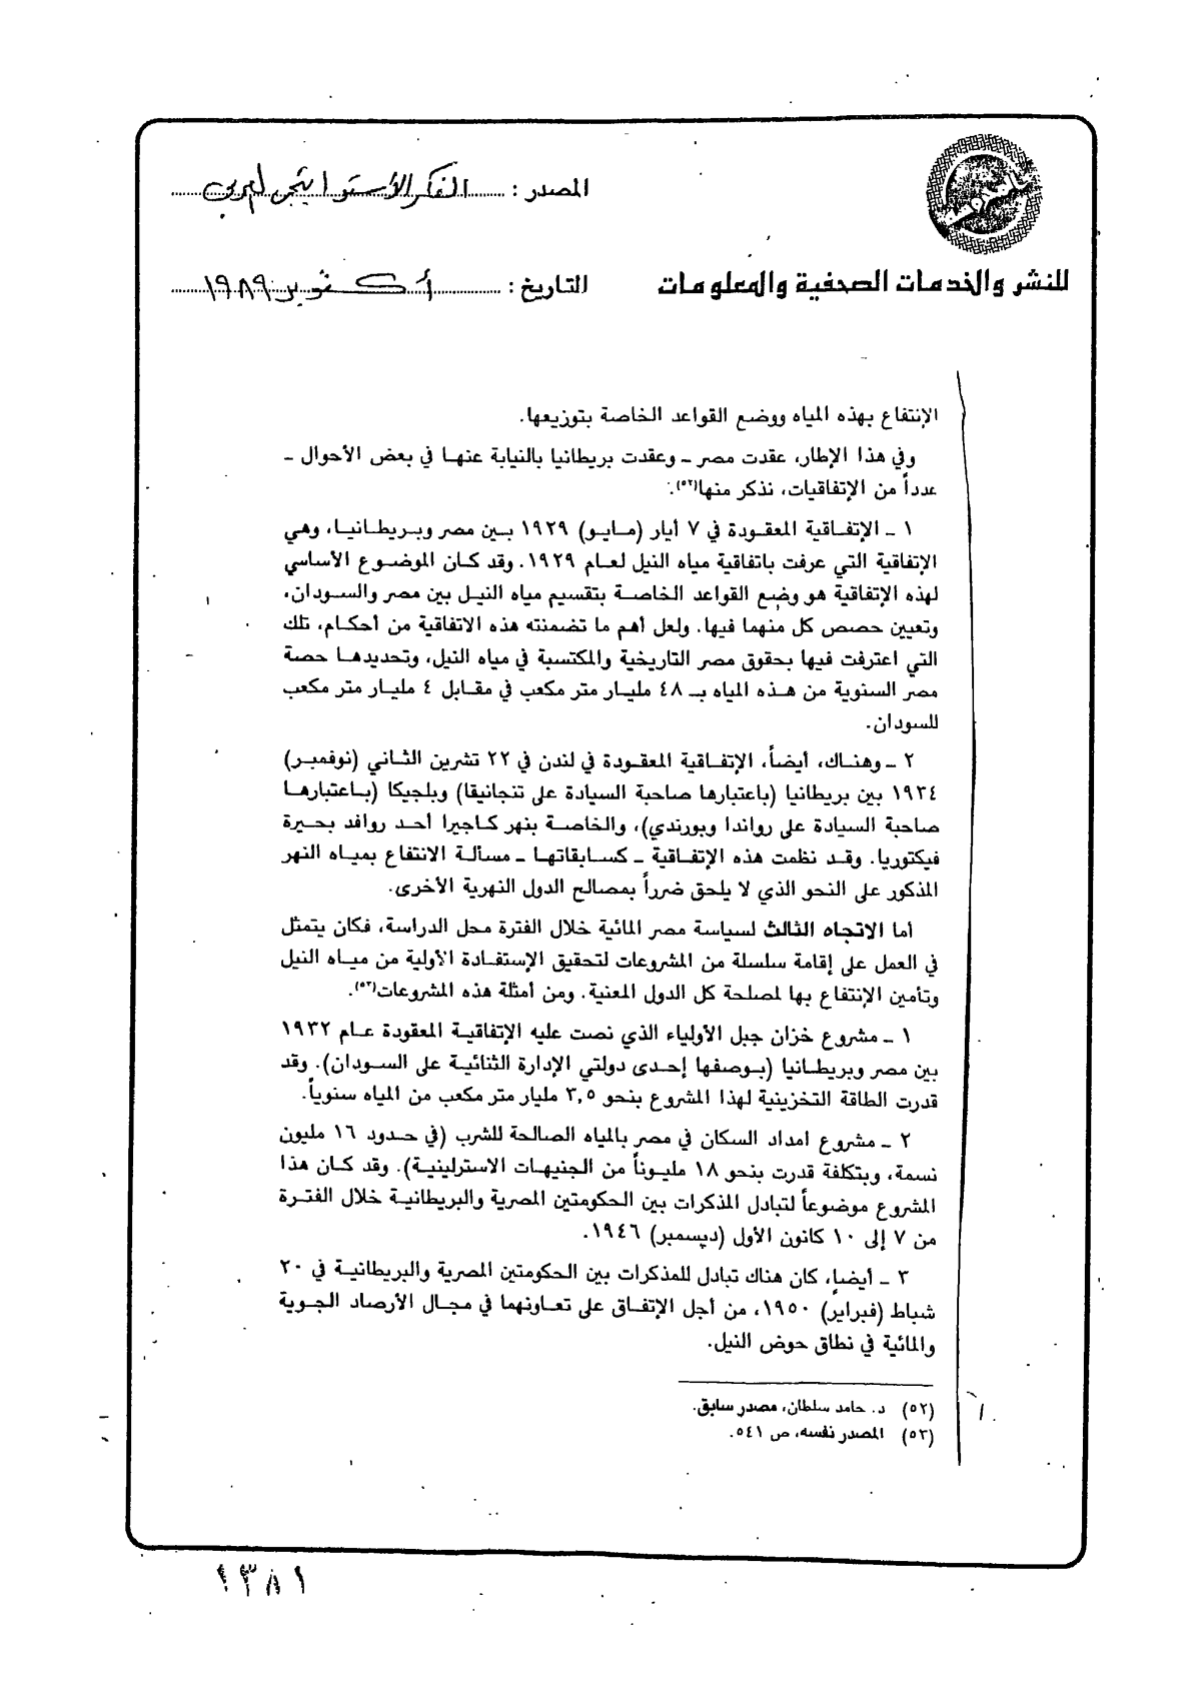 المصدر : الفكر الاستراتيجي العربي
للنشر والخدمات الصحفية والمعلومات
التاريخ : أكتوبر ١٩٨٩
الإنتفاع بهذه المياه ووضع القواعد الخاصة بتوزيعها.
وفي هذا الإطار، عقدت مصر ــ وعقدت بريطانيا بالنيابة عنها في بعض الأحوال ــ
عدداً من الإتفاقيات، نذكر منها(٥٢):
١ ــ الإتفاقية المعقودة في ٧ أيار (مايو) ١٩٢٩ بين مصر وبريطانيا، وهي
الإتفاقية التي عرفت باتفاقية مياه النيل لعام ١٩٢٩. وقد كان الموضوع الأساسي
لهذه الإتفاقية هو وضع القواعد الخاصة بتقسيم مياه النيل بين مصر والسودان،
وتعيين حصص كل منهما فيها. ولعل أهم ما تضمنته هذه الاتفاقية من أحكام، تلك
التي اعترفت فيها بحقوق مصر التاريخية والمكتسبة في مياه النيل، وتحديدها حصة
مصر السنوية من هذه المياه بـ ٤٨ مليار متر مكعب في مقابل ٤ مليار متر مكعب
للسودان.
٢ ــ وهناك، أيضاً، الإتفاقية المعقودة في لندن في ٢٢ تشرين الثاني (نوفمبر)
١٩٣٤ بين بريطانيا (باعتبارها صاحبة السيادة على تنجانيقا) وبلجيكا (باعتبارها
صاحبة السيادة على رواندا وبورندي)، والخاصة بنهر كاجيرا أحد روافد بحيرة
فيكتوريا. وقد نظمت هذه الإتفاقية ــ كسابقاتها ــ مسألة الانتفاع بمياه النهر
المذكور على النحو الذي لا يلحق ضرراً بمصالح الدول النهرية الأخرى.
أما الاتجاه الثالث لسياسة مصر المائية خلال الفترة محل الدراسة، فكان يتمثل
في العمل على إقامة سلسلة من المشروعات لتحقيق الإستفادة الأولية من مياه النيل
وتأمين الإنتفاع بها لمصلحة كل الدول المعنية. ومن أمثلة هذه المشروعات(٥٣).
١ ــ مشروع خزان جبل الأولياء الذي نصت عليه الإتفاقية المعقودة عام ١٩٣٢
بين مصر وبريطانيا (بوصفها إحدى دولتي الإدارة الثنائية على السودان). وقد
قدرت الطاقة التخزينية لهذا المشروع بنحو ٣,٥ مليار متر مكعب من المياه سنوياً.
٢ ــ مشروع امداد السكان في مصر بالمياه الصالحة للشرب (في حدود ١٦ مليون
نسمة، وبتكلفة قدرت بنحو ١٨ مليوناً من الجنيهات الاسترلينية). وقد كان هذا
المشروع موضوعاً لتبادل المذكرات بين الحكومتين المصرية والبريطانية خلال الفترة
من ٧ إلى ١٠ كانون الأول (ديسمبر) ١٩٤٦.
٣ ــ أيضاً، كان هناك تبادل للمذكرات بين الحكومتين المصرية والبريطانية في ٢٠
شباط (فبراير) ١٩٥٠، من أجل الإتفاق على تعاونهما في مجال الأرصاد الجوية
والمائية في نطاق حوض النيل.
(٥٢) د. حامد سلطان، مصدر سابق.
(٥٣) المصدر نفسه، ص ٥٤١.
١٣٨١